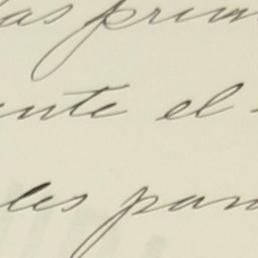 las prim
ente el
les para